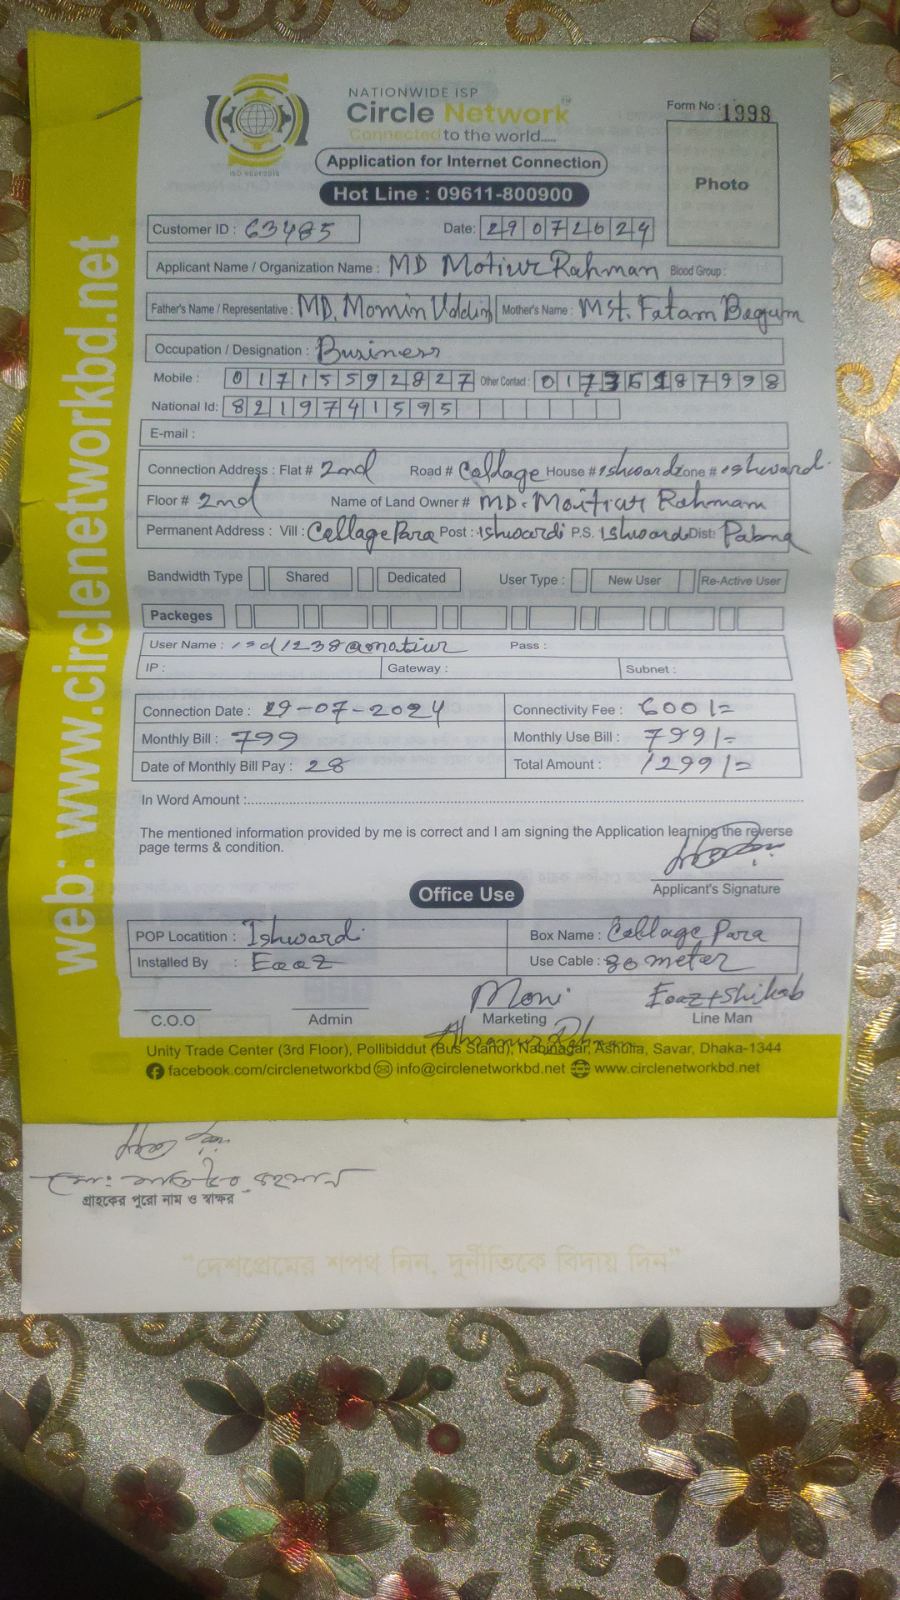 NATIONWIDE ISP
Circle Network™
Connected to the world.....
ISO 9001:2015
Form No : 1998
Application for Internet Connection
Photo
Hot Line : 09611-800900
Customer ID : 63485 Date: 29072024
Applicant Name / Organization Name : MD Motiur Rahman Blood Group :
Father's Name / Representative : MD. Momin Uddin Mother's Name : Mst. Fatam Begum
Occupation / Designation : Business
Mobile : 01715592827 Other Contact : 017 5187998
National Id: 8219741595
E-mail :
Connection Address : Flat # 2nd Road # Collage House # Ishwardi Zone # Ishward
Floor # 2nd Name of Land Owner # MD. Moitiur Rahmam
Permanent Address : Vill : CollagePara Post : Ishwardi P.S. Ishward Dist: Pabna
Bandwidth Type Shared Dedicated User Type : New User Re-Active User
Packeges
User Name : isd1238@motiur Pass :
IP : Gateway : Subnet :
Connection Date : 29-07-2024 Connectivity Fee : 600/=
Monthly Bill : 799 Monthly Use Bill : 799/=
Date of Monthly Bill Pay : 28 Total Amount : 1299/=
In Word Amount :
The mentioned information provided by me is correct and I am signing the Application learning the reverse
page terms & condition.
Applicant's Signature
Office Use
POP Locatition : Ishwardi Box Name : Collage Para
Installed By : Eaaz Use Cable : 80 meter
Moni Eaaz+Shihab
C.O.O Admin Marketing Line Man
Unity Trade Center (3rd Floor), Pollibiddut (Bus Stand), Nabinagar, Ashulia, Savar, Dhaka-1344
facebook.com/circlenetworkbd info@circlenetworkbd.net www.circlenetworkbd.net
web: www.circlenetworkbd.net
মো: মতিউর রহমান
গ্রাহকের পুরো নাম ও স্বাক্ষর
“দেশপ্রেমের শপথ নিন, দুর্নীতিকে বিদায় দিন”